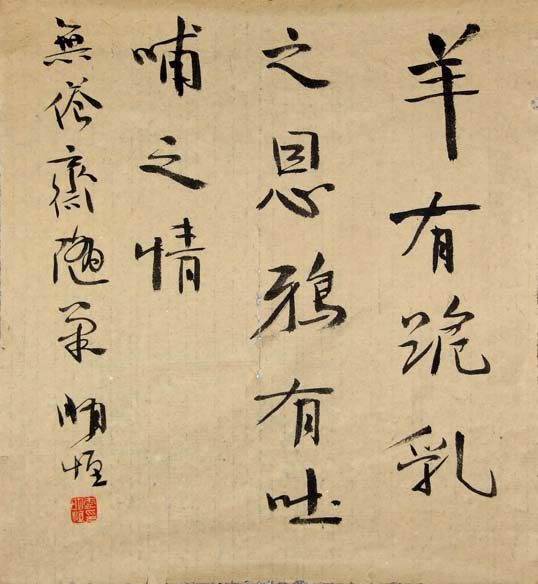 羊有跪乳
之恩鴉有吐
哺之情
無俗齋隨筆 明